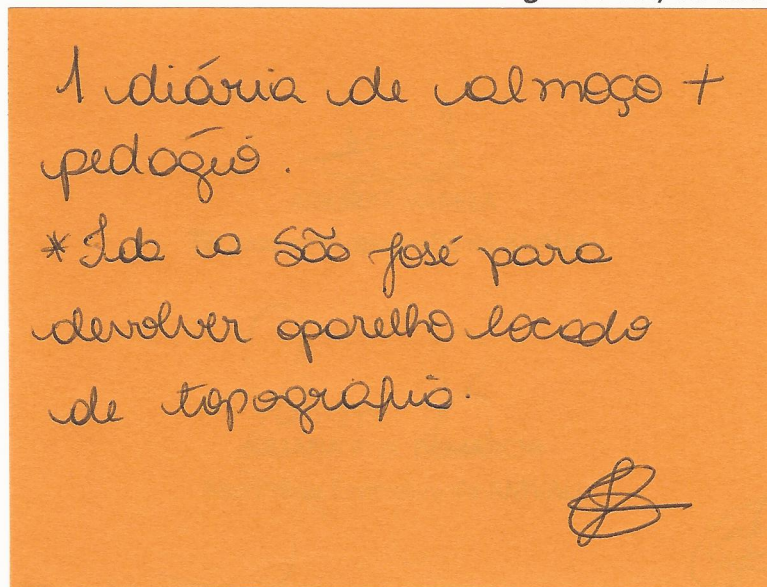 1 diária de almoço +
pedágio.
*Ida a São José para
devolver aparelho locado
de topografia.